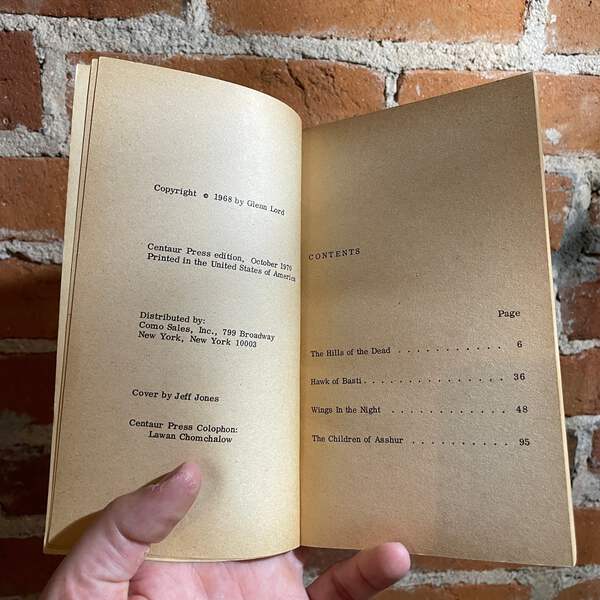 Copyright © 1968 by Glenn Lord
Centaur Press edition, October 1970
Printed in the United States of America
Distributed by:
Como Sales, Inc., 799 Broadway
New York, New York 10003
Cover by Jeff Jones
Centaur Press Colophon:
Lawan Chomchalow
CONTENTS
Page
The Hills of the Dead . . . . . . . . . . . 6
Hawk of Basti . . . . . . . . . . . . . . . 36
Wings In the Night . . . . . . . . . . . . 48
The Children of Asshur . . . . . . . . . . 95